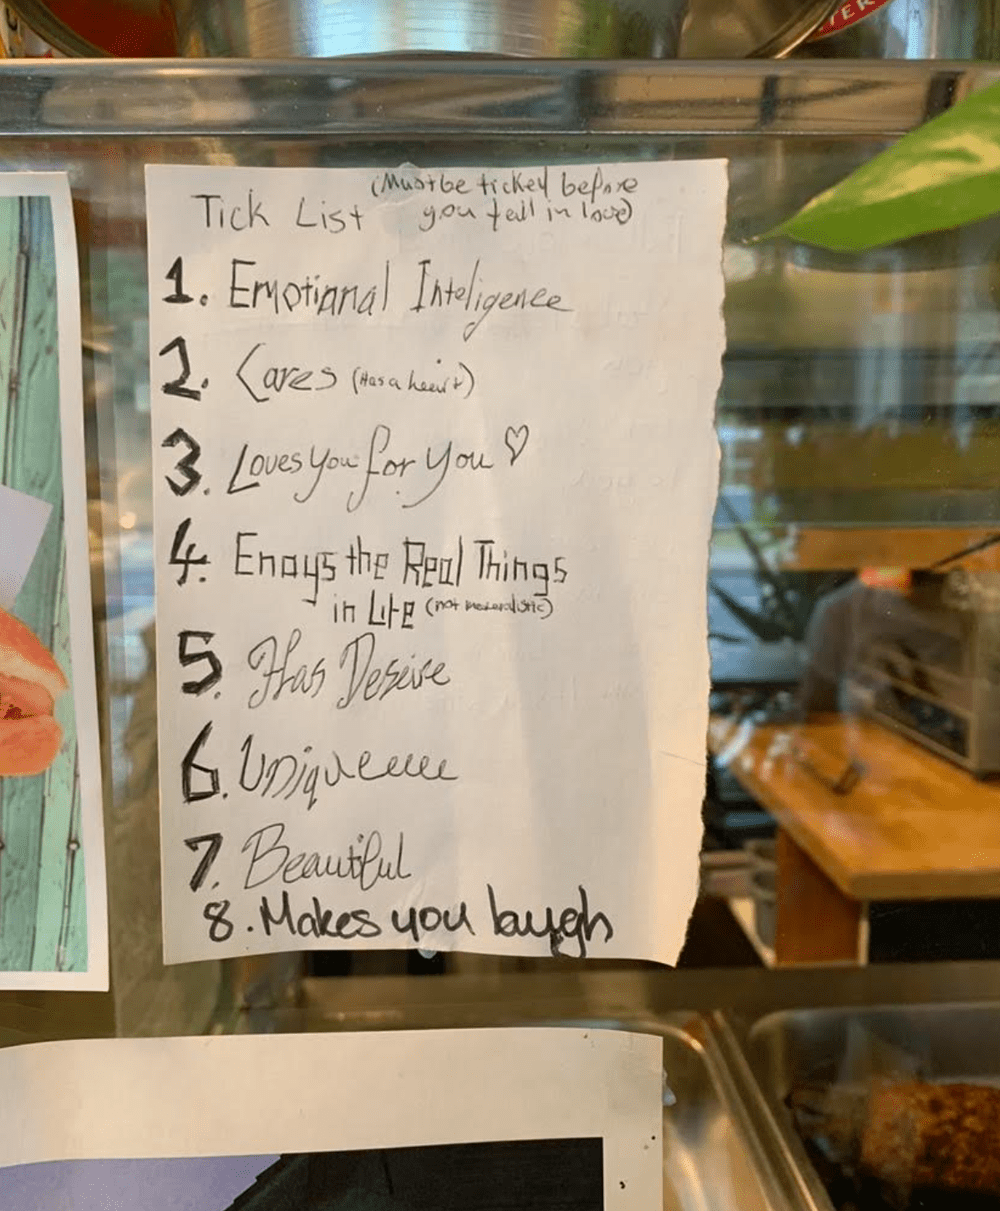 TER
(Must be ticked before
Tick List you fall in love)
1. Emotional Inteligence
2. Cares (Has a heart)
3. Loves you for you ♡
4. Enoys the Real Things
in Life (not materalistic)
5. Has Deseire
6. Uniqueeeee
7. Beautiful
8. Makes you laugh